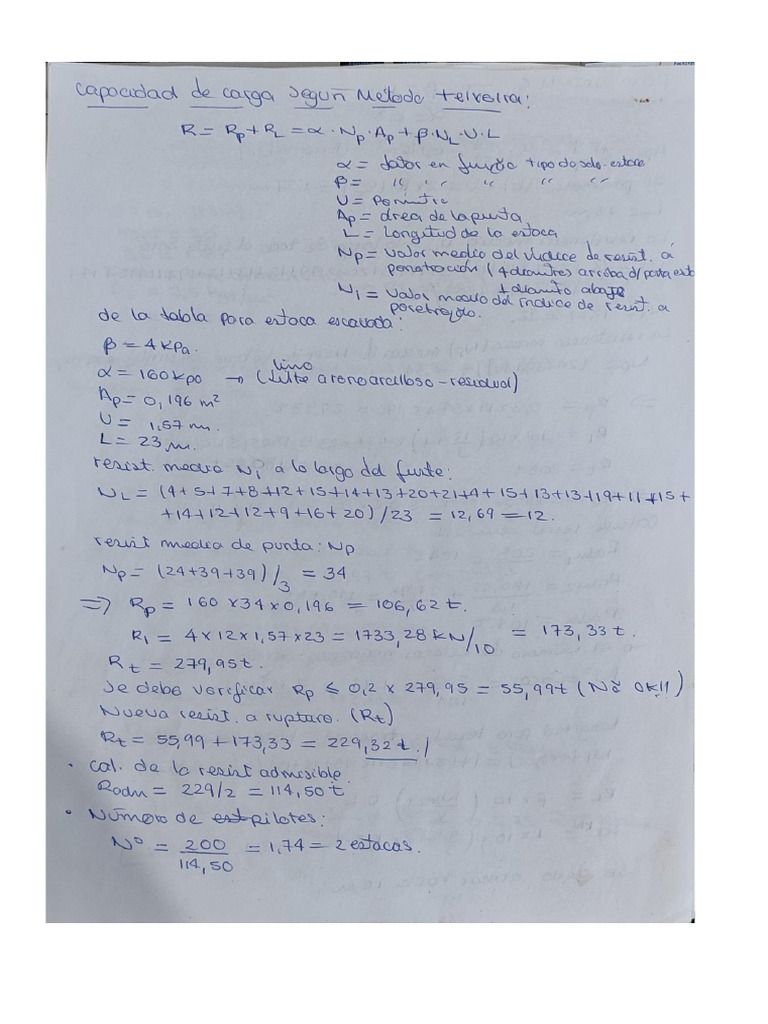 Capacidad de carga Según Método teixeira:
R = Rp + RL = α · Np · Ap + β · NL · U · L
α = fator en função tipo do solo-estaca
β = " " " " " "
U = Perimetro
Ap = área de la punta
L = Longitud de la estaca
Np = Valor medio del índice de resist. a
penetración (4 diametros) arriba d/ punta est
1 diametro abajo
Ni = Valor medio del índice de resist. a
penetração.
de la tabla para estaca escavada:
β = 4 kPa.
limo
α = 160 kpa → ( arenoarcilloso - residual)
Ap = 0,196 m²
U = 1,57 m.
L = 23 m.
resist. media Ni a lo largo del fuste:
NL = (4+5+7+8+12+15+14+13+20+21+4+15+13+13+19+11+15+
+14+12+12+9+16+20)/23 = 12,69 = 12.
resist media de punta: Np
Np = (24+39+39)/3 = 34
⇒ Rp = 160 x 34 x 0,196 = 106,62 t.
Rl = 4 x 12 x 1,57 x 23 = 1733,28 kN/10 = 173,33 t.
Rt = 279,95 t.
Se debe verificar Rp ≤ 0,2 x 279,95 = 55,99 t (Nõ ok!!)
Nueva resist. a ruptura. (Rt)
Rt = 55,99 + 173,33 = 229,32 t.
• Cal. de la resist admisible.
Radm = 229/2 = 114,50 t
• Número de est pilotes:
N° = 200/114,50 = 1,74 = 2 estacas.